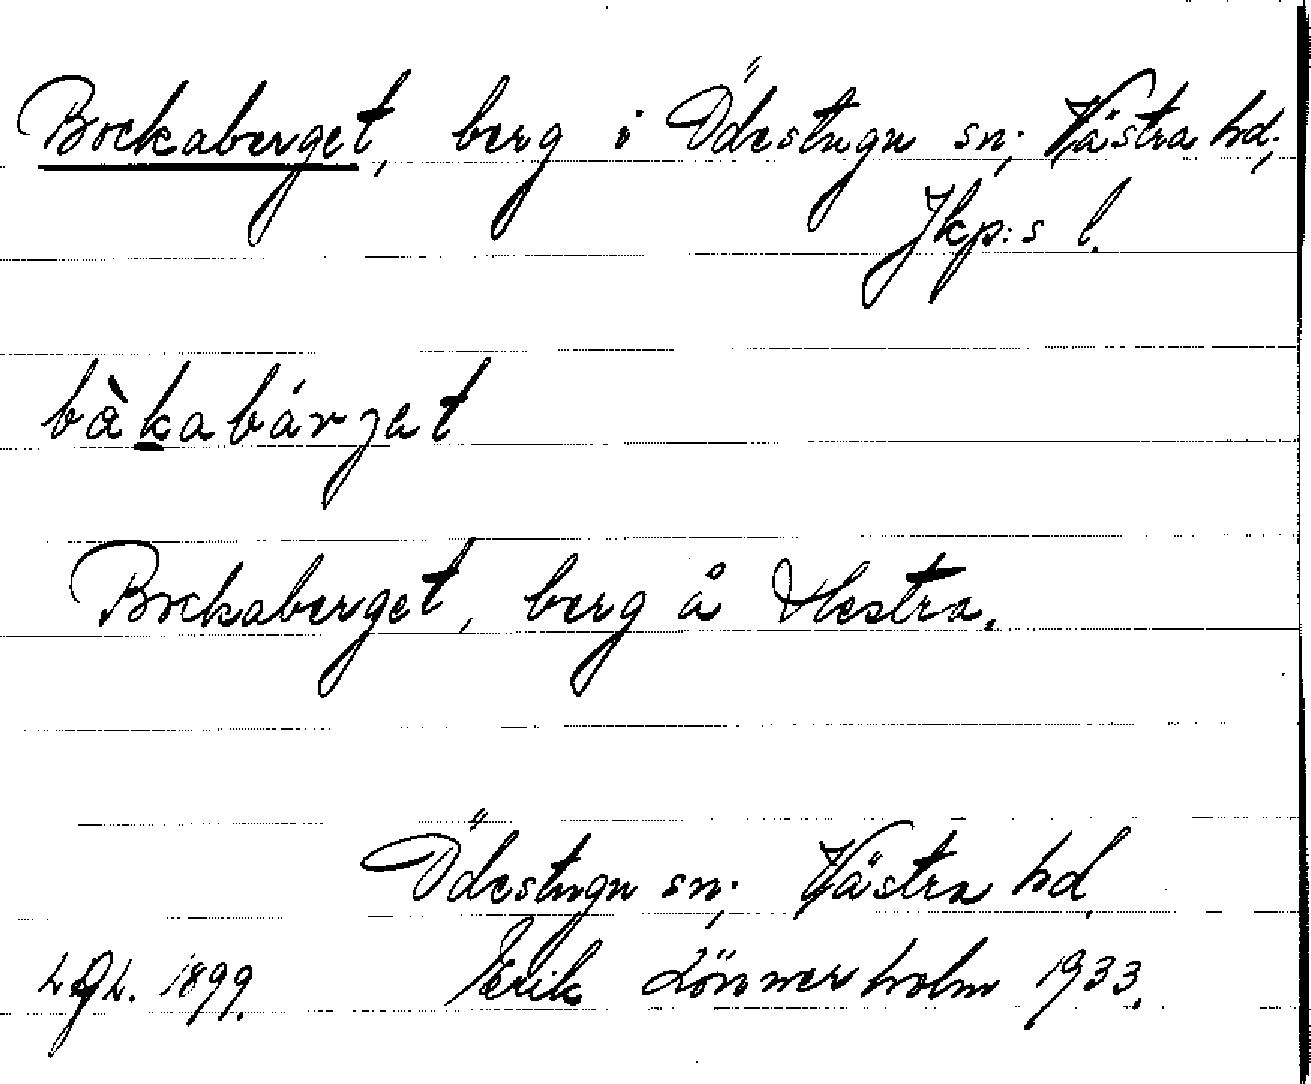 Bockaberget, berg i Ödestugu sn; Västra hd;
Jkp:s l.
bàkabárjat
Bockaberget, berg å Hestra.
Ödestugu sn; Västra hd.
1899. Erik Lönnerholm 1933.